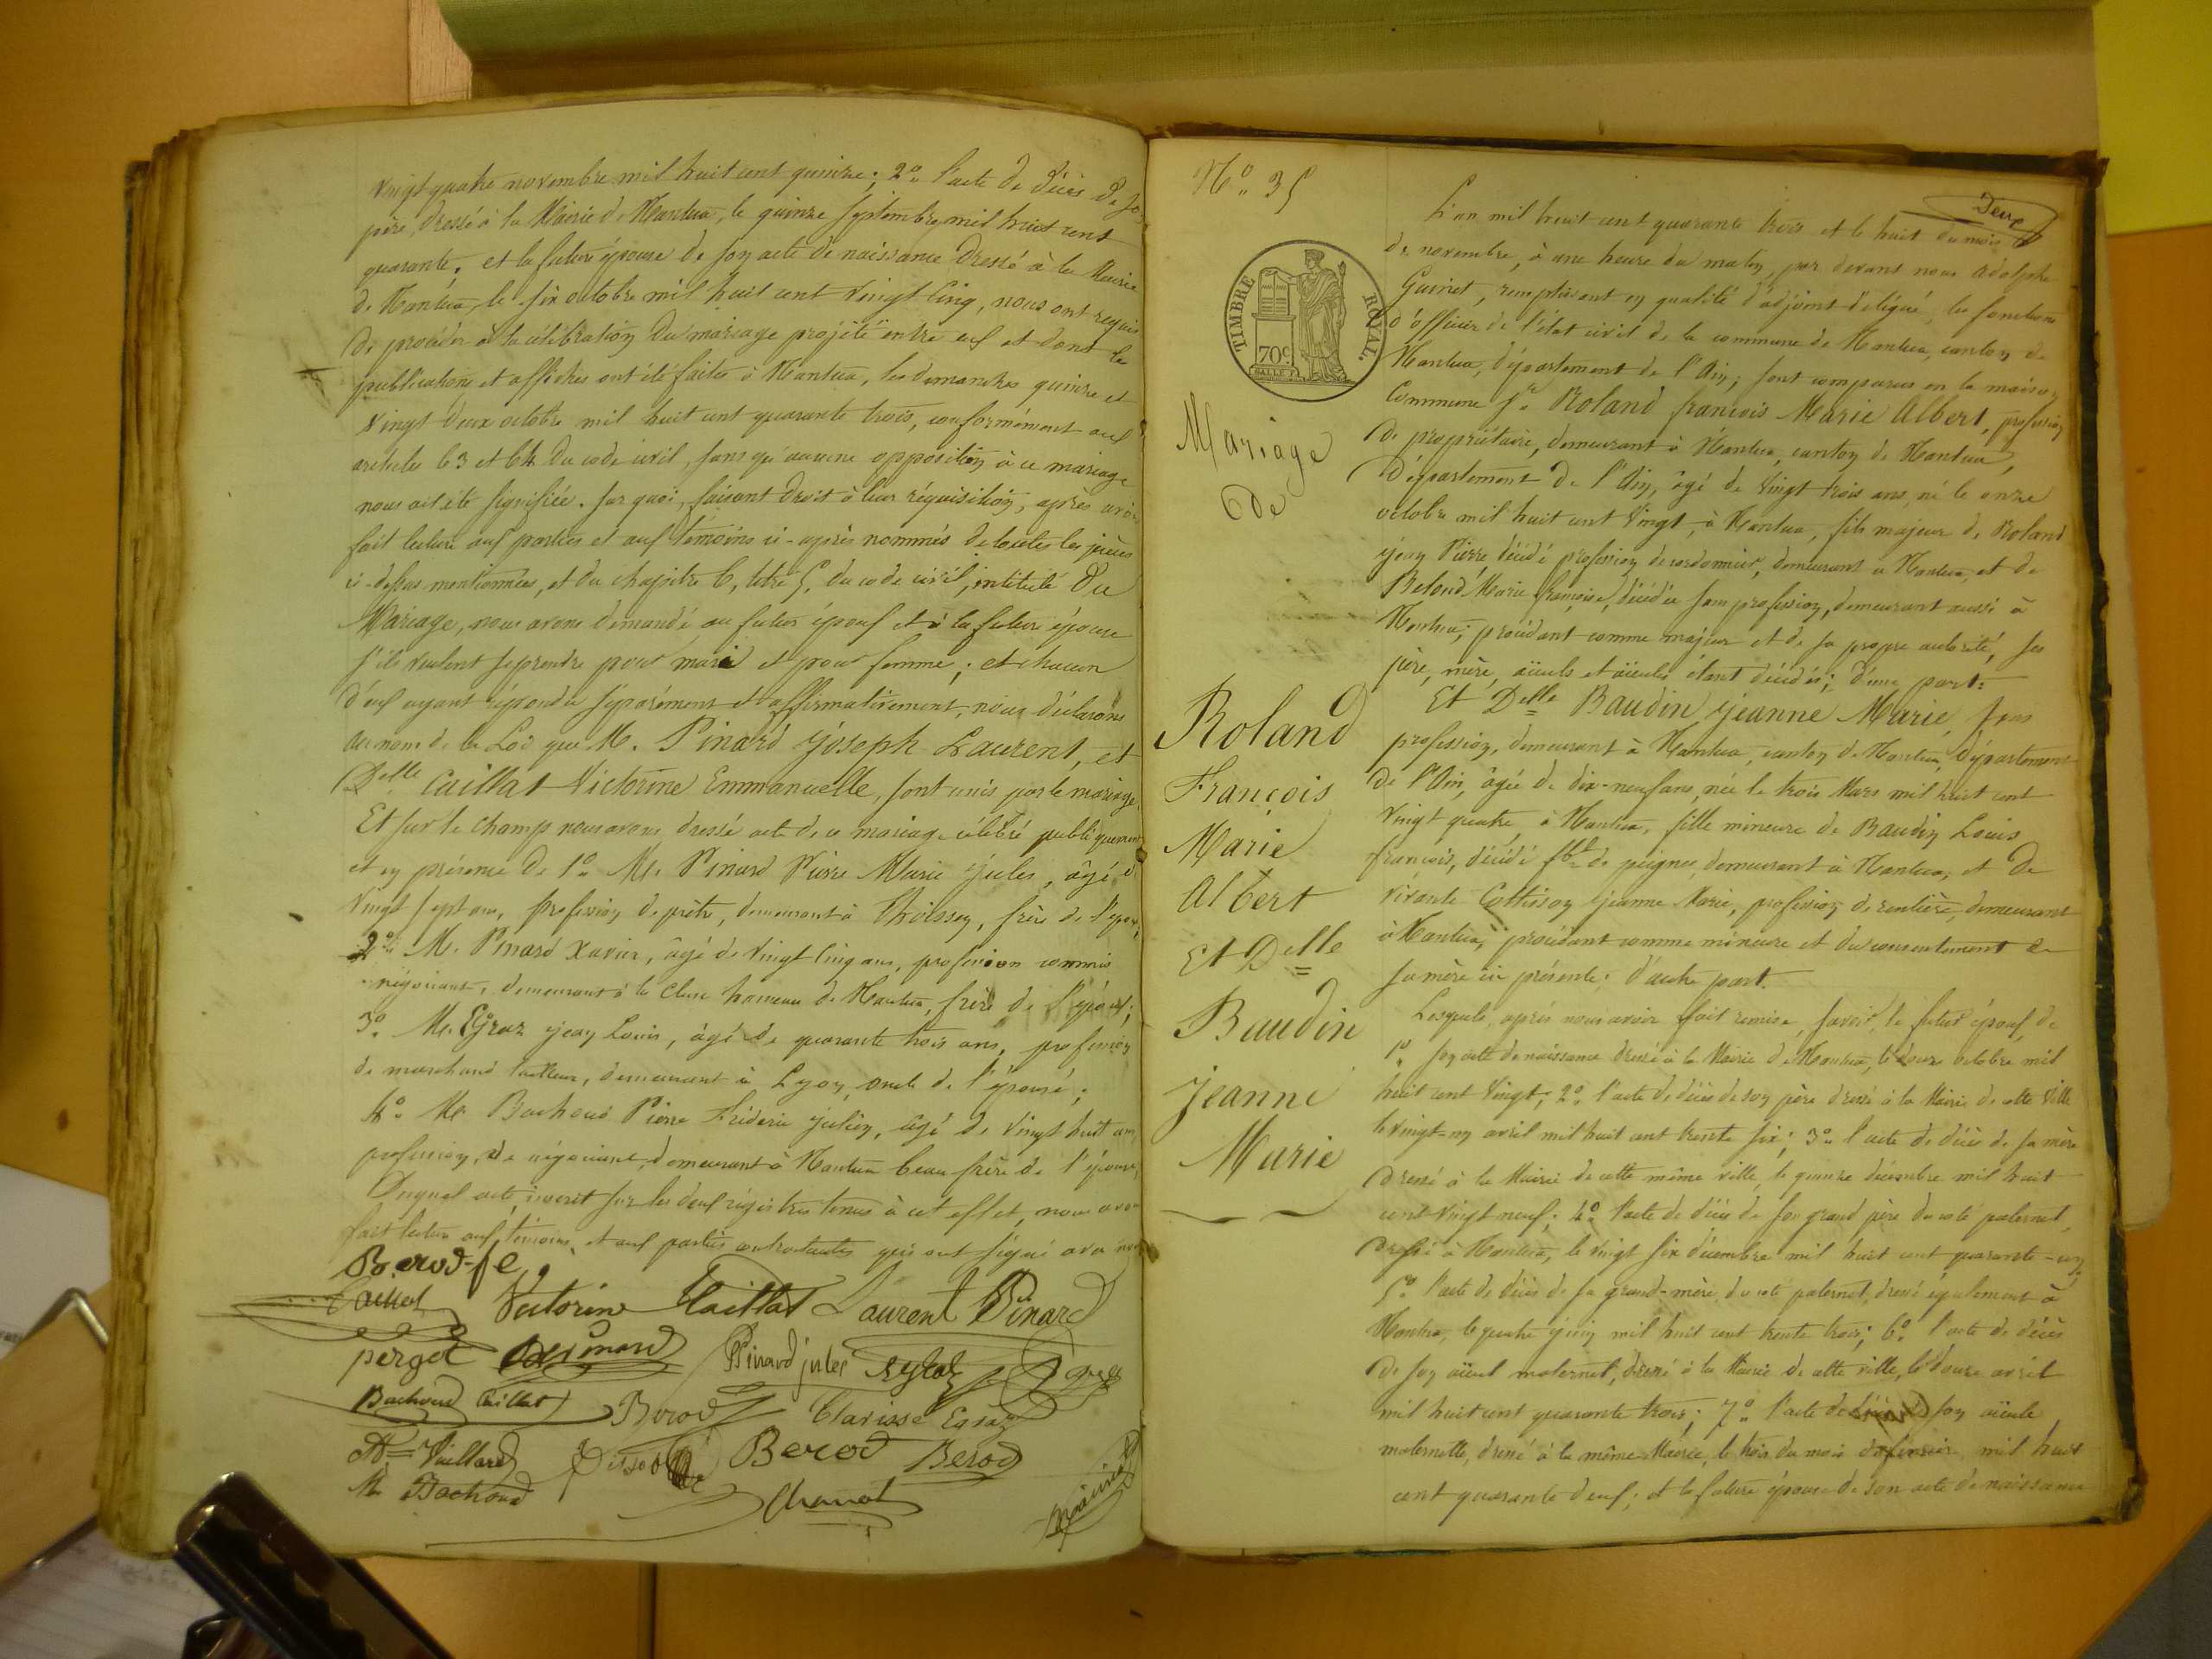 vingt quatre novembre mil huit cent quinze; 2° l'acte de décès de so
père, dressé à la Mairie de Nantua, le quinze septembre mil huit cent
quarante. et la future épouse de son acte de naissance dressé à la Mairie
de Nantua, le six octobre mil huit cent vingt cinq, nous ont requis
de procéder à la célébration du mariage projeté entre eux et dont les
publications et affiches ont été faites à Nantua, les dimanches quinze et
vingt deux octobre mil huit cent quarante trois, conformément aux
articles 63 et 64 du code civil, sans que aucune opposition à ce mariage
nous ait été signifiée. sur quoi, faisant droit à leur réquisition, après avoir
fait lecture aux parties et aux témoins ci-après nommés de toutes les pièces
ci-dessus mentionnées, et du chapitre 6, titre 5, du code civil, intitulé Du
Mariage, nous avons demandé au futur époux et à la future épouse
s'ils veulent se prendre pour mari et pour femme; et chacun
d'eux ayant répondu séparément et affirmativement, nous déclarons
au nom de la Loi que M. Pinard Joseph Laurent, et
Delle Caillat Victorine Emmanuelle, sont unis par le mariage.
Et sur le champ nous avons dressé acte de ce mariage célébré publiquement
et en présence de 1° M. Pinard Pierre Marie Jules, âgé de
vingt sept ans, profession de prêtre, demeurant à Thoissey, frère de l'époux;
2° M. Pinard Xavier, âgé de vingt cinq ans, profession commis
négociant, demeurant à la Cluse hameau de Nantua, frère de l'époux;
3° M. Egraz Jean Louis, âgé de quarante trois ans, profession
de marchand tailleur, demeurant à Lyon, oncle de l'épouse;
4° M. Bachoud Pierre Fréderic Julien, âgé de vingt huit ans,
profession de négociant, demeurant à Nantua beau-frère de l'épouse,
Duquel acte, inscrit sur les deux registres tenus à cet effet, nous avons
fait lecture aux témoins et aux parties contractantes qui ont signé avec nous
Berod-fe
Caillat Victorine Caillat Laurent Pinard
perget Pinard jules
Bachoud Caillat Berod Clarisse Egraz
Vuillard Berod Berod
M Bachoud Chanot
N° 35
TIMBRE ROYAL.
70c
Mariage
de
Roland
François
Marie
Albert
Et Delle
Baudin
Jeanne
Marie
Deux
L'an mil huit cent quarante trois et le huit du mois
de novembre, à une heure du matin, par devant nous Adolphe
Guinet, remplissant en qualité d'adjoint délégué, les fonctions
d'officier de l'état civil de la commune de Nantua, canton de
Nantua, département de l'Ain; sont comparus en la maison
Commune Sr Roland françois Marie Albert, profession
de propriétaire, demeurant à Nantua, canton de Nantua,
Département de l'Ain, âgé de vingt trois ans, né le onze
octobre mil huit cent vingt, à Nantua, fils majeur de Roland
Jean Pierre, décédé profession de cordonnier, demeurant à Nantua, et de
Marie françoise, décédée sans profession, demeurant aussi à
Nantua; procédant comme majeur et de sa propre autorité, ses
père, mère, aïeuls et aïeules étant décédés; d'une part:
Et Delle Baudin Jeanne Marie, sans
profession, demeurant à Nantua, canton de Nantua, département
de l'Ain, âgée de dix-neuf ans, née le trois Mars mil huit cent
vingt quatre, à Nantua, fille mineure de Baudin Louis
françois, décédé fbt de peignes, demeurant à Nantua, et de
vivante Jeanne Marie, profession de rentière, demeurant
à Nantua, procédant comme mineure et du consentement de
sa mère ici présente; d'autre part.
Lesquels, après nous avoir fait remise, savoir, le futur époux, de
1° son acte de naissance dressé à la Mairie de Nantua, le douze octobre mil
huit cent vingt; 2° l'acte de décès de son père dressé à la Mairie de cette ville
le vingt-un avril mil huit cent trente six; 3° l'acte de décès de sa mère
dressé à la Mairie de cette même ville, le quinze décembre mil huit
cent vingt neuf; 4° l'acte de décès de son grand père du coté paternel,
dressé à Nantua, le vingt six décembre mil huit cent quarante-un,
5° l'acte de décès de sa grand-mère, du coté paternel, dressé également à
Nantua, le quatre juin mil huit cent trente trois; 6° l'acte de décès
de son aïeul maternel, dressé à la Mairie de cette ville, le douze avril
mil huit cent quarante trois; 7° l'acte de décès de son aïeule
maternelle, dressé à la même Mairie, le trois du mois de février mil huit
cent quarante deux; et la future épouse de son acte de naissance